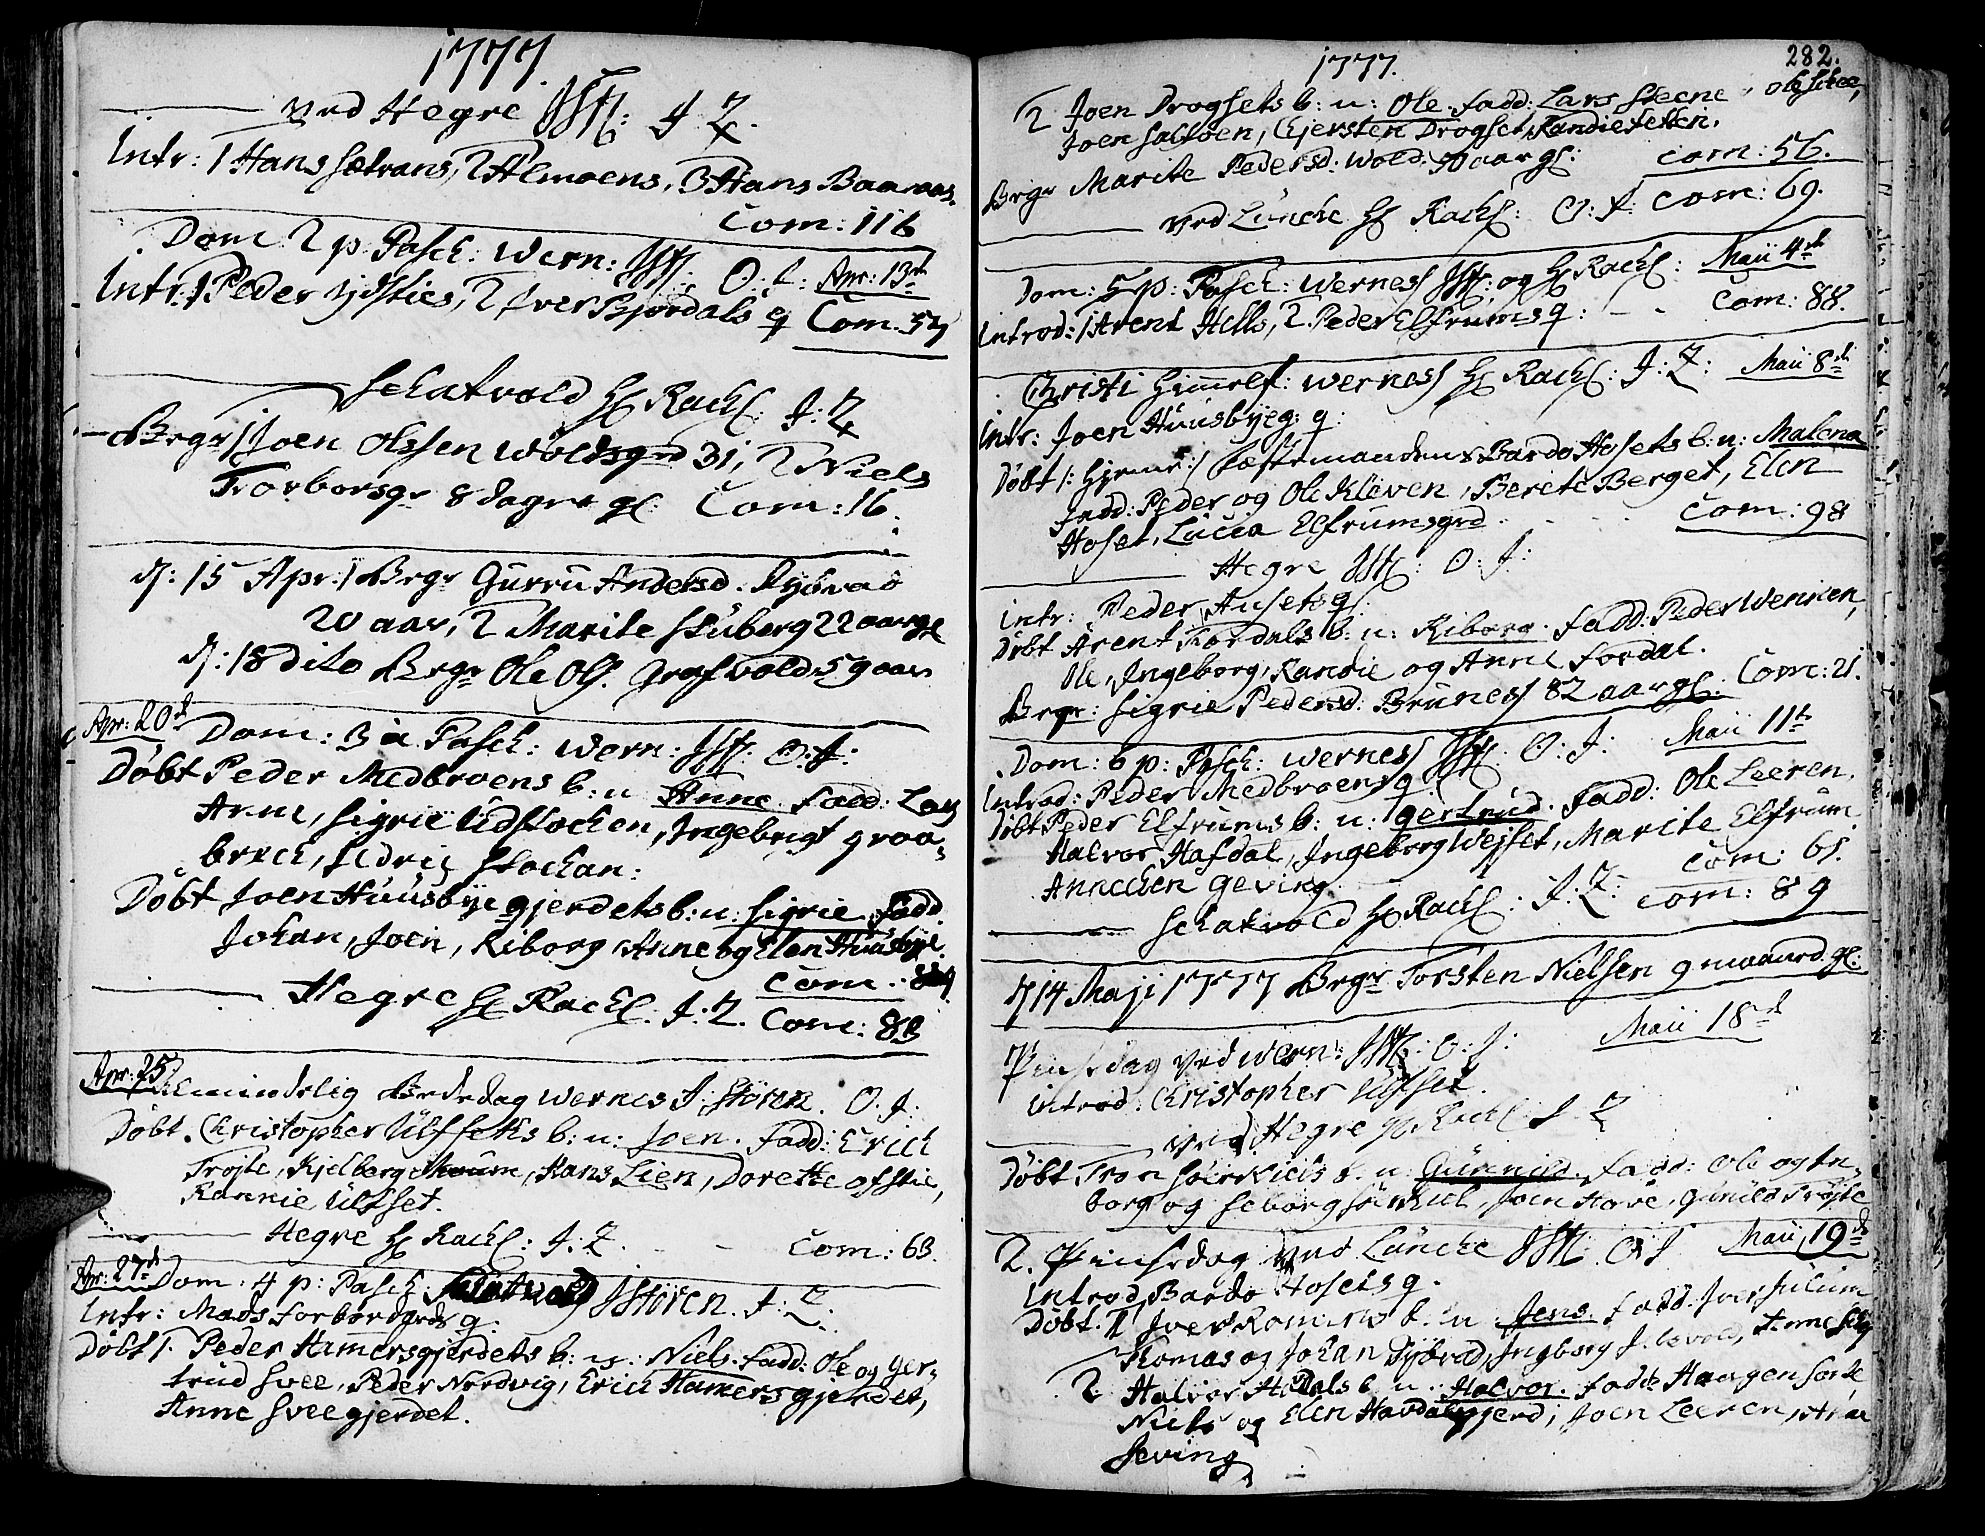 1777.
ved Hegre JStf: J: Z.
Intr: 1 Hans Sætrans, 2 Almoens, 3 Hans Baaraas.
Com: 116
Dom: 2 p: Pasch: Wern: JStf: O: J: Apr: 13d
Intr: 1 Peder ydsties, 2 Iver Kjordals q Com: 54
Schatvold H Rachl: J: Z
Brgr 1 Joen Olssen Woldsgrd 31, 2 Niels
Frorborsgr 8 dagr gl: Com: 16.
d: 15 Apr: 1 Brgr Gurru Andersd.
20 aar, 2 Marite Skuberg 22 aar gl
d: 18 dito Brgr Ole Ols. Græsvold 59 aar
Apr: 20d Dom: 3 a Pasch: Wern: JStf: O: J:
Døbt Peder Medbroens b: n Anne. fadd: Lars
Arne, Sigrie Udstochen, Ingebrigt graa-
brech, Stochan:
Døbt Joen Huusbyegjerdets b: n: Sigrie, fadd.
Johan, Joen, Kiborg Anne og Elen Huusbye.
Com:
Hegre H Rachl: J: Z. Com: 83
Apr: 25 Almindelig Bededag Wernes J: Støren. O. J:
Døbt. Christopher Ulfsets b: n: Joen. Fadd: Erich
Trøjte, Kjelberg Moum, Hans Lien, Dorette Ofstie,
Rannie Ulfset.
Hegre H Rachl: J: Z. - - Com: 63.
Apr: 27d Dom: 4 p: Pasch Schatvold JStøren. J: Z.
Intr: Mads Forbordgrds q.
Døbt 1. Peder Hamersgjerdets b: n: Niels. fadd: Ole og Ger-
trud Svee, Peder Nordvig, Erich Hamersgjerdet,
Anne Sveegjerdet.
1777. 282.
2 Joen Drogsets b: n: Ole. fadd: Lars Steene, Ole
Joen Saltøen, Chjersten Drogset, Randie Teten.
Brgr Marite Pedersd: Wold: 70 aar gl: Com: 56.
ved Luncke H Rachl: O: J: Com: 69.
Dom: 5 p: Pasch: Werness JStf: og H Rachl: Maii 4d
Introd: 1 Arent Hells, 2. Peder Elfrums q: - - Com: 88.
Christi Himmelf: Werness H Rachl: J: Z: Maii 8d
Intr: Joen Huusbyeg: q:
Døbt 1: Hjeme: / Fæstemandens Bardo Hosets b: n: Malena
fadd: Peder og Ole Kleven, Berete Berget, Elen
Hoset, Lucia Elfrumsgrd. Com: 98
Hegre JStf: O: J:
Intr: Peder Ausets q:
Døbt Arent Fordals b: n: Kiborg. fadd: Peder Wennen,
Ole, Ingeborg, Randie og Anne Fordal.
Brgr: Sigrie Pedersd: Bruness 82 aar gl: Com: 21.
Dom: 6 p: Pasch: Werness JStf: O: J: Maii 11th
Introd: Peder Medbroens q:
Døbt Peder Elfrums b: n: Gertrud. fadd: Ole Leeren,
Halvor Hafdal, Ingeborg Wejset, Marite Elfrum
Annechen Geving. Com: 65.
Schatvold H Rachl: J: Z: Com: 89
d 14 Maji 1777 Brgr Torsten Nielsen 9 maaned. gl:
Pinsedag ved Wern: JStf: O: J: Maii 18d
Introd: Christopher Ulfset.
ved Hegre H Rachl: J Z
Døbt Tron Sørkiels b: n: Gunnild. fadd: Ole og In-
borg og Seborg Sørkiel, Joen Hove, Gunild Trøjte
2. Pinsedag ved Luncke JStf: O: J Maii 19d
Introd Bardo Hosets q.
Døbt. 1 Iver b: n Jens. fadd: Iver
Thomas og Johan, Ingborg, Anne
2 Halvor b: n: Halvor. fadd: Haagen
Niels og Elen Havdalsgjerd, Joen Leeren,
Geving